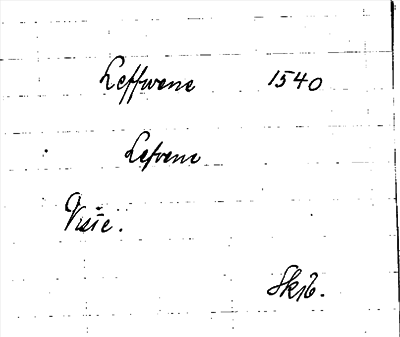 Leffwene 1540
Lefvene
Viste.
Skrb.